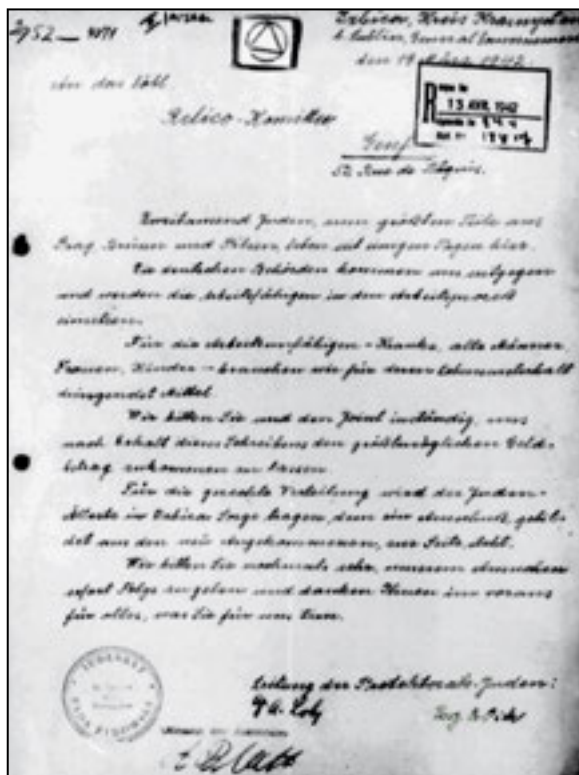 Izbica, Kreis Krasnystaw
den 19. März 1942.
An das löbl.
Relico-Komitee
13 AVR. 1942
Genf
52, Rue de Pâquis.
Zweitausend Juden, zum größten Teile aus
Prag, Brünn und Pilsen, leben seit einigen Tagen hier.
Die deutschen Behörden kommen uns entgegen
und werden die Arbeitsfähigen in den Arbeitsprozeß
einsetzen.
Für die Arbeitsunfähigen - Kranke, alte Männer,
Frauen, Kinder - brauchen wir für deren Lebensunterhalt
dringendst Mittel.
Wir bitten Sie und den Joint inständig, uns
nach Erhalt dieses Schreibens den größtmöglichen Geld-
betrag zukommen zu lassen.
Für die gerechte Verteilung wird der Juden-
Älteste in Izbica Sorge tragen, dem ein Ausschuß, gebil-
det aus den neu Angekommenen, zur Seite steht.
Wir bitten Sie nochmals sehr, unserem Ansuchen
sofort Folge zu geben und danken Ihnen im voraus
für alles, was Sie für uns tun.
Leitung der Protektorats-Juden: